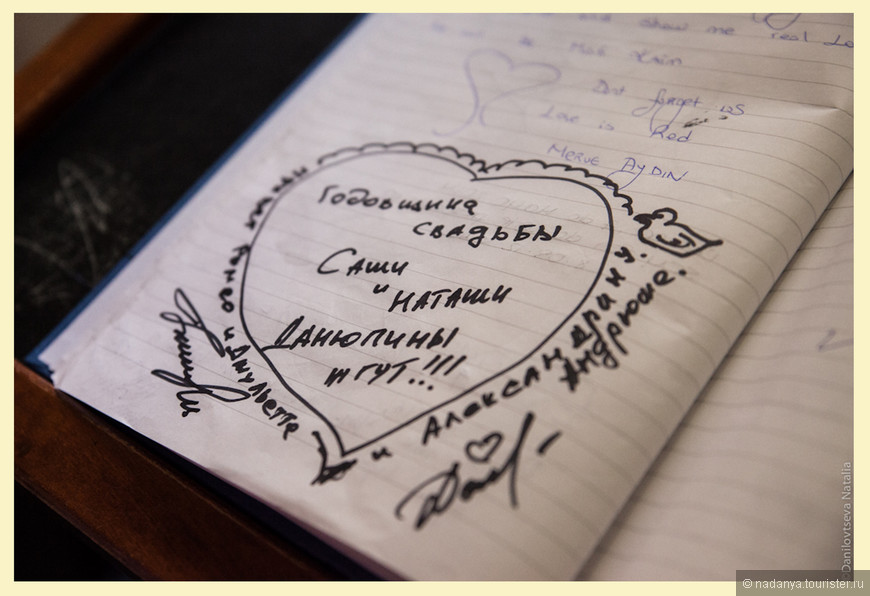 and show me real Lo
Dont forget us
Love is Red
MERVE AYDIN
Годовщина
СВАДЬБЫ
САШИ
и НАТАШИ
ДАНЮПИНЫ
ЖГУТ..!!!
Ромео и Джульетте
и АЛЕКСАНДРИНУ.
АНДРЮШЕ.
©Danilovtseva Natalia
© nadanya.tourister.ru